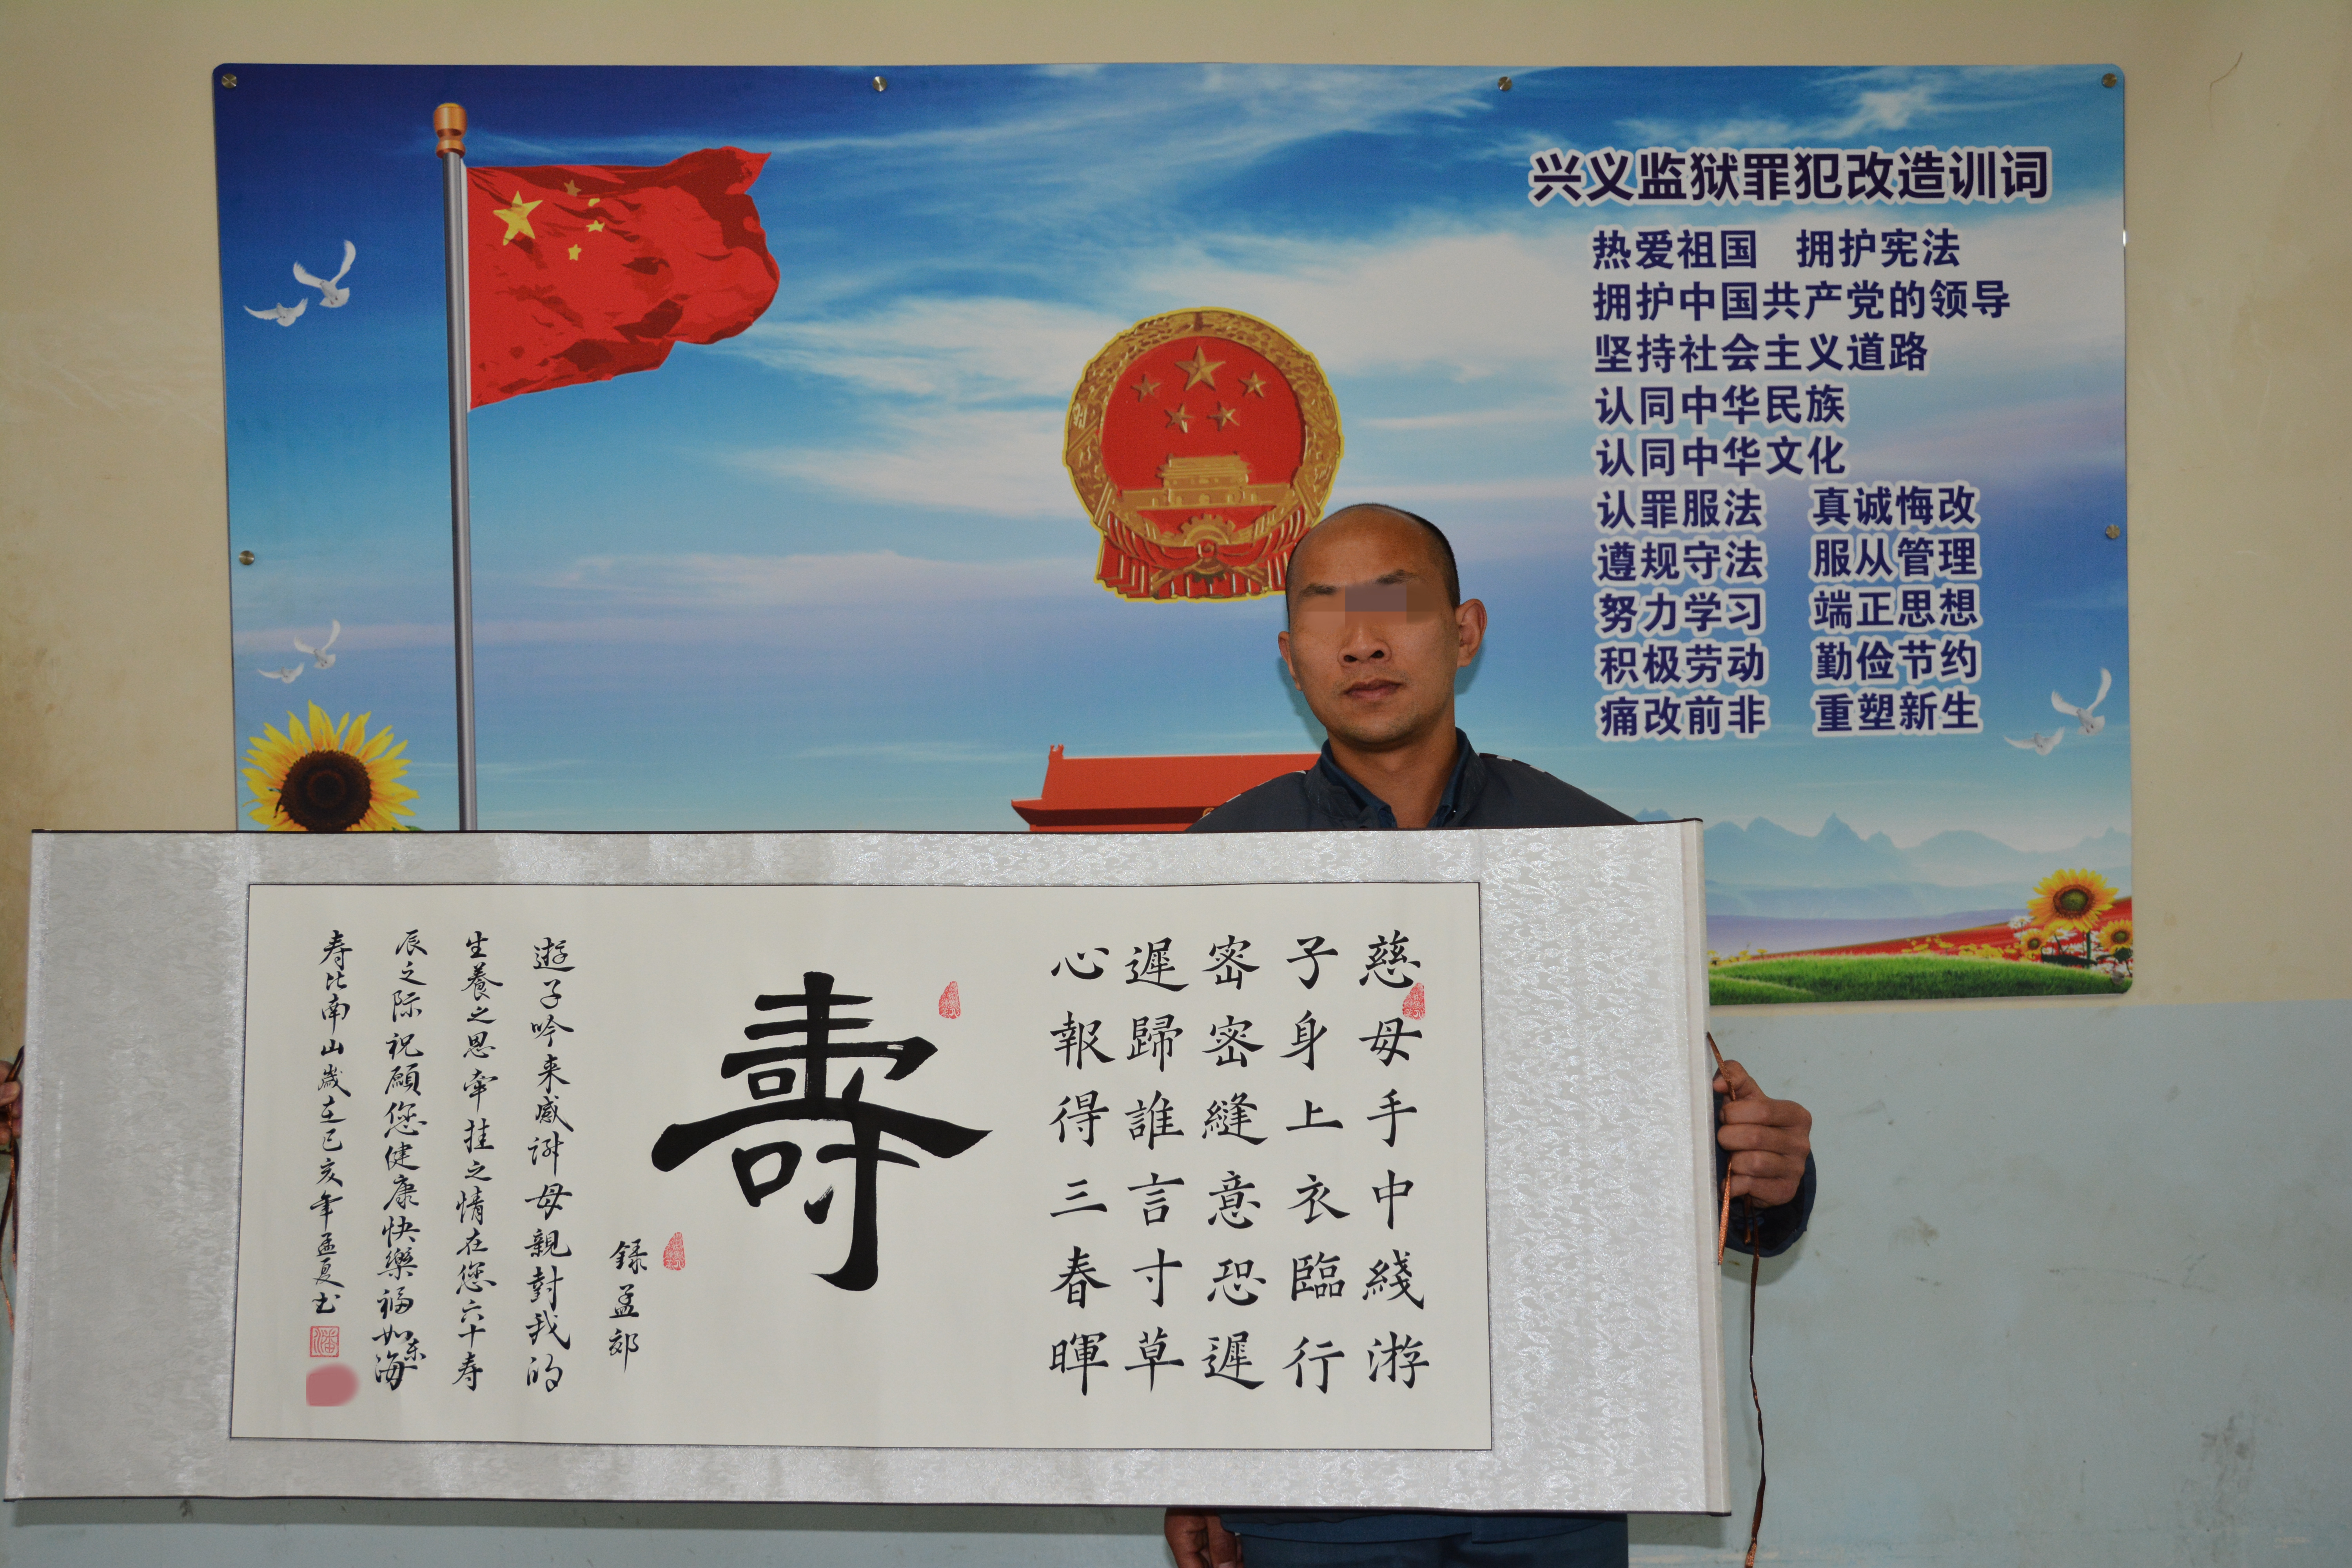 兴义监狱罪犯改造训词
热爱祖国 拥护宪法
拥护中国共产党的领导
坚持社会主义道路
认同中华民族
认同中华文化
认罪服法 真诚悔改
遵规守法 服从管理
努力学习 端正思想
积极劳动 勤俭节约
痛改前非 重塑新生
慈母手中綫游
子身上衣臨行
密密縫意恐遲
遲歸誰言寸草
心報得三春暉
壽
録孟郊
遊子吟来感謝母親對我的
生養之恩牵挂之情在您六十寿
辰之际祝願您健康快樂福如东海
寿比南山歲在己亥年孟夏书
潘